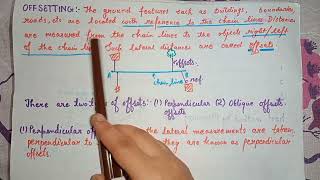 OFFSETTING: The ground features such as buildings, boundaries,
roads, etc are located with reference to the chain lines. Distances
are measured from the chain lines to the objects right/left
of the chain line. Such lateral distances are called offsets.
offsets
A
B
chain line
There are two types of offsets:- (1) Perpendicular (2) Oblique offsets
offsets
(1) Perpendicular the lateral measurements are taken
perpendicular to they are known as perpendicular
offsets.